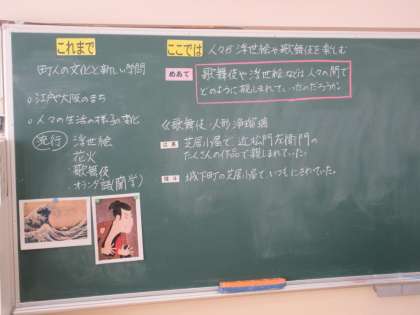 これまで
町人の文化と新しい学問
○江戸や大阪のまち
○人々の生活の様子の変化
流行
浮世絵
花火
歌舞伎
オランダ語(蘭学)
ここでは
人々が浮世絵や歌舞伎を楽しむ
めあて
歌舞伎や浮世絵などは人々の間で
どのように親しまれていったのだろうか。
歌舞伎・人形浄瑠璃
芝居小屋で近松門左衛門の
たくさんの作品で親しまれていた。
城下町の芝居小屋で、いつもにぎわっていた。